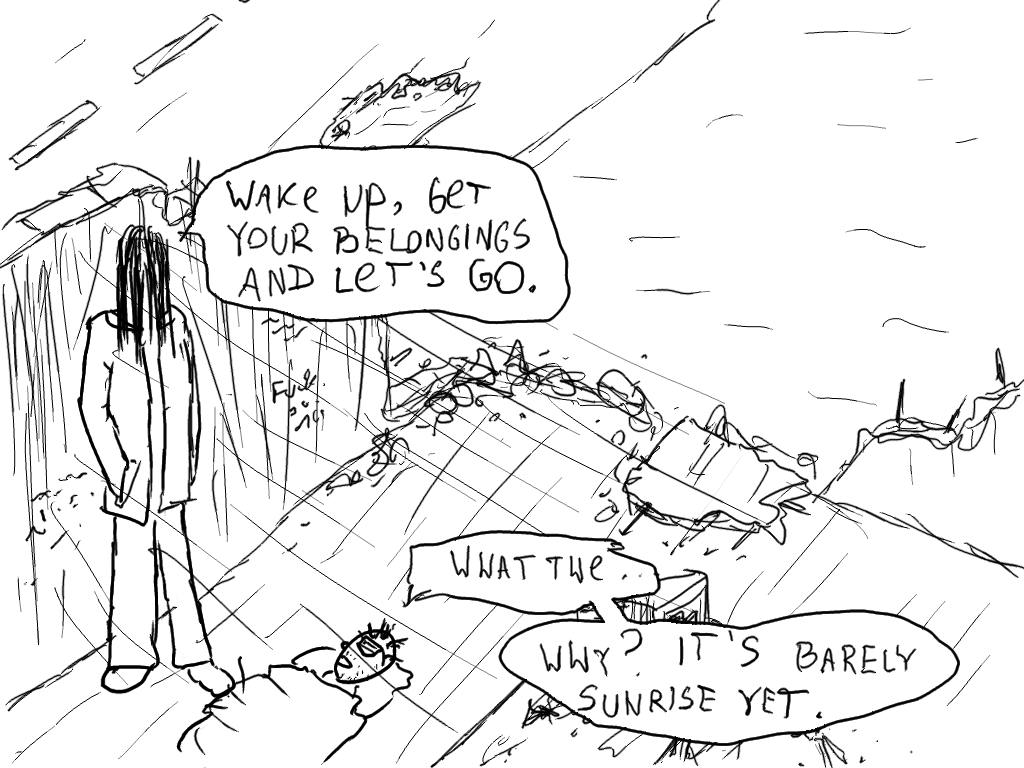 WAKE UP, GET
YOUR BELONGINGS
AND LET'S GO.
WHAT THE...
WHY? IT'S BARELY
SUNRISE YET.